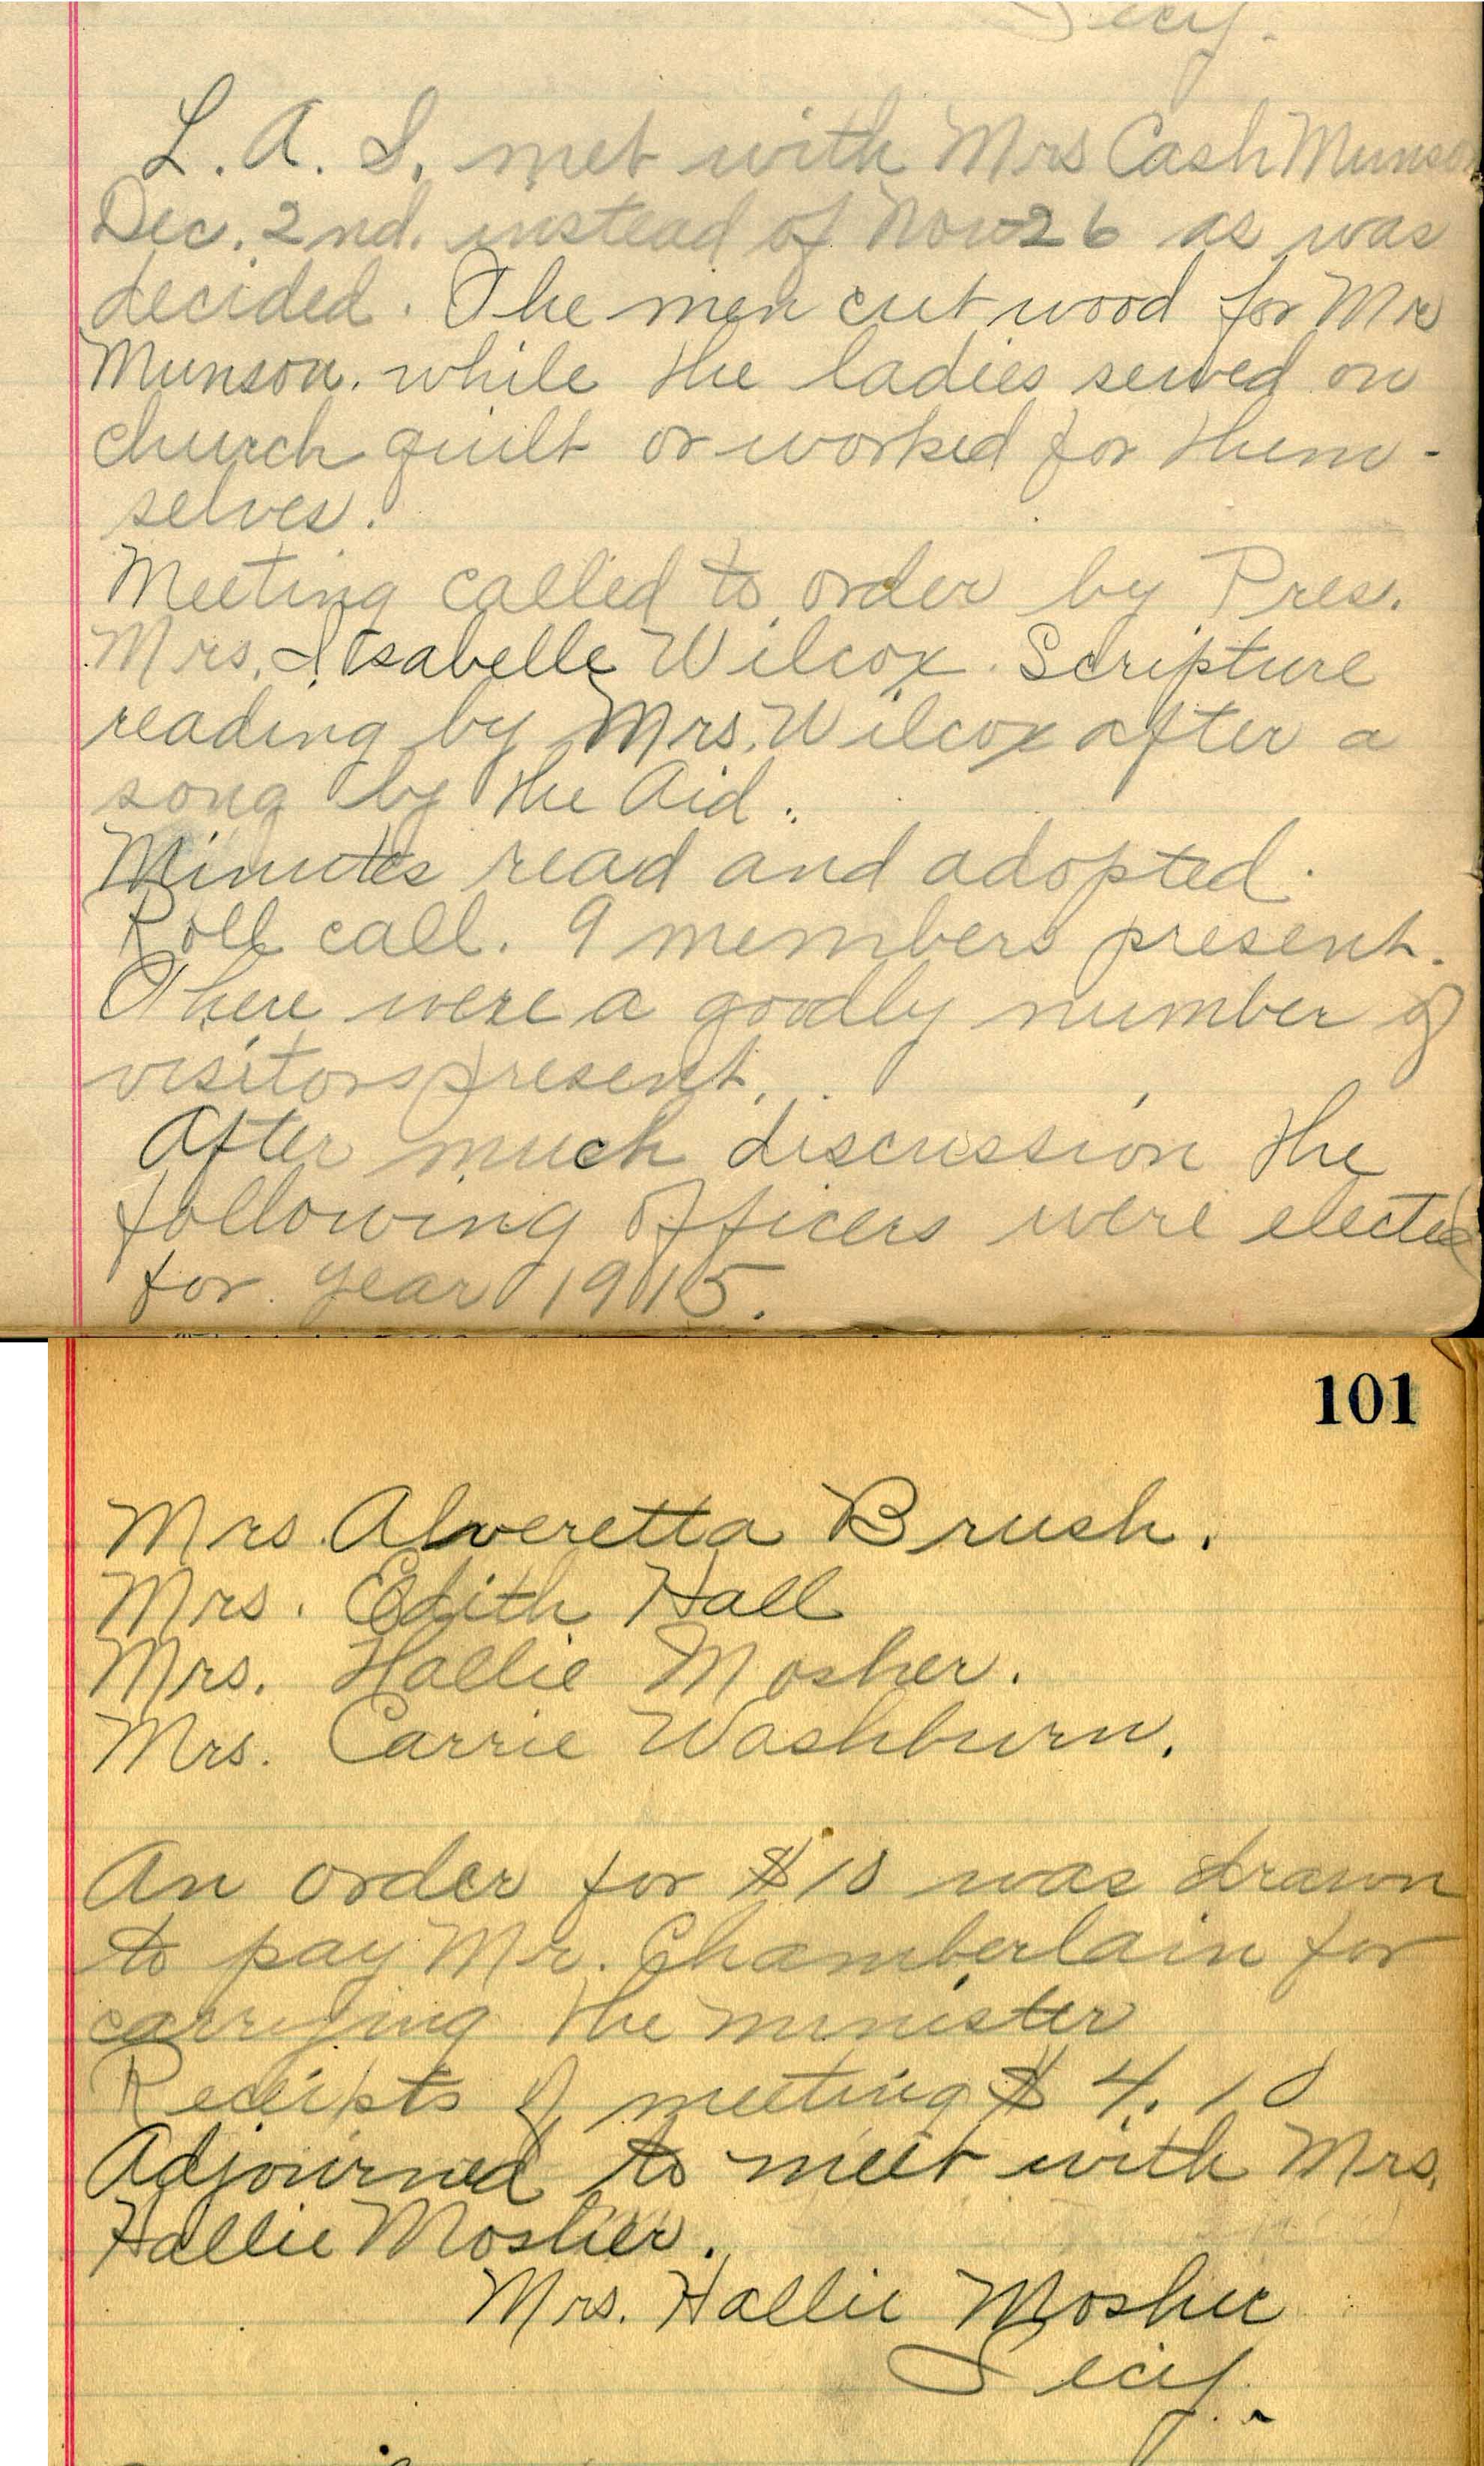 Secy.
L. A. S. met with Mrs Cash Munson
Dec. 2nd. instead of Nov 26 as was
decided. The men cut wood for Mr
Munson. while the ladies sewed on
church quilt or worked for them-
selves.
Meeting called to order by Pres.
Mrs. Isabelle Wilcox. Scripture
reading by Mrs. Wilcox after a
song by the Aid.
Minutes read and adopted.
Roll call. 9 members present.
There were a goodly number of
visitors present.
After much discussion the
following officers were elected
for year 1915.
101
Mrs. Alveretta Brush.
Mrs. Edith Hall
Mrs. Hallie Mosher.
Mrs. Carrie Washburn.
An order for $10 was drawn
to pay Mr. Chamberlain for
carrying the minister
Receipts of meeting $4.10
Adjourned to meet with Mrs.
Hallie Mosher.
Mrs. Hallie Mosher
Secy.